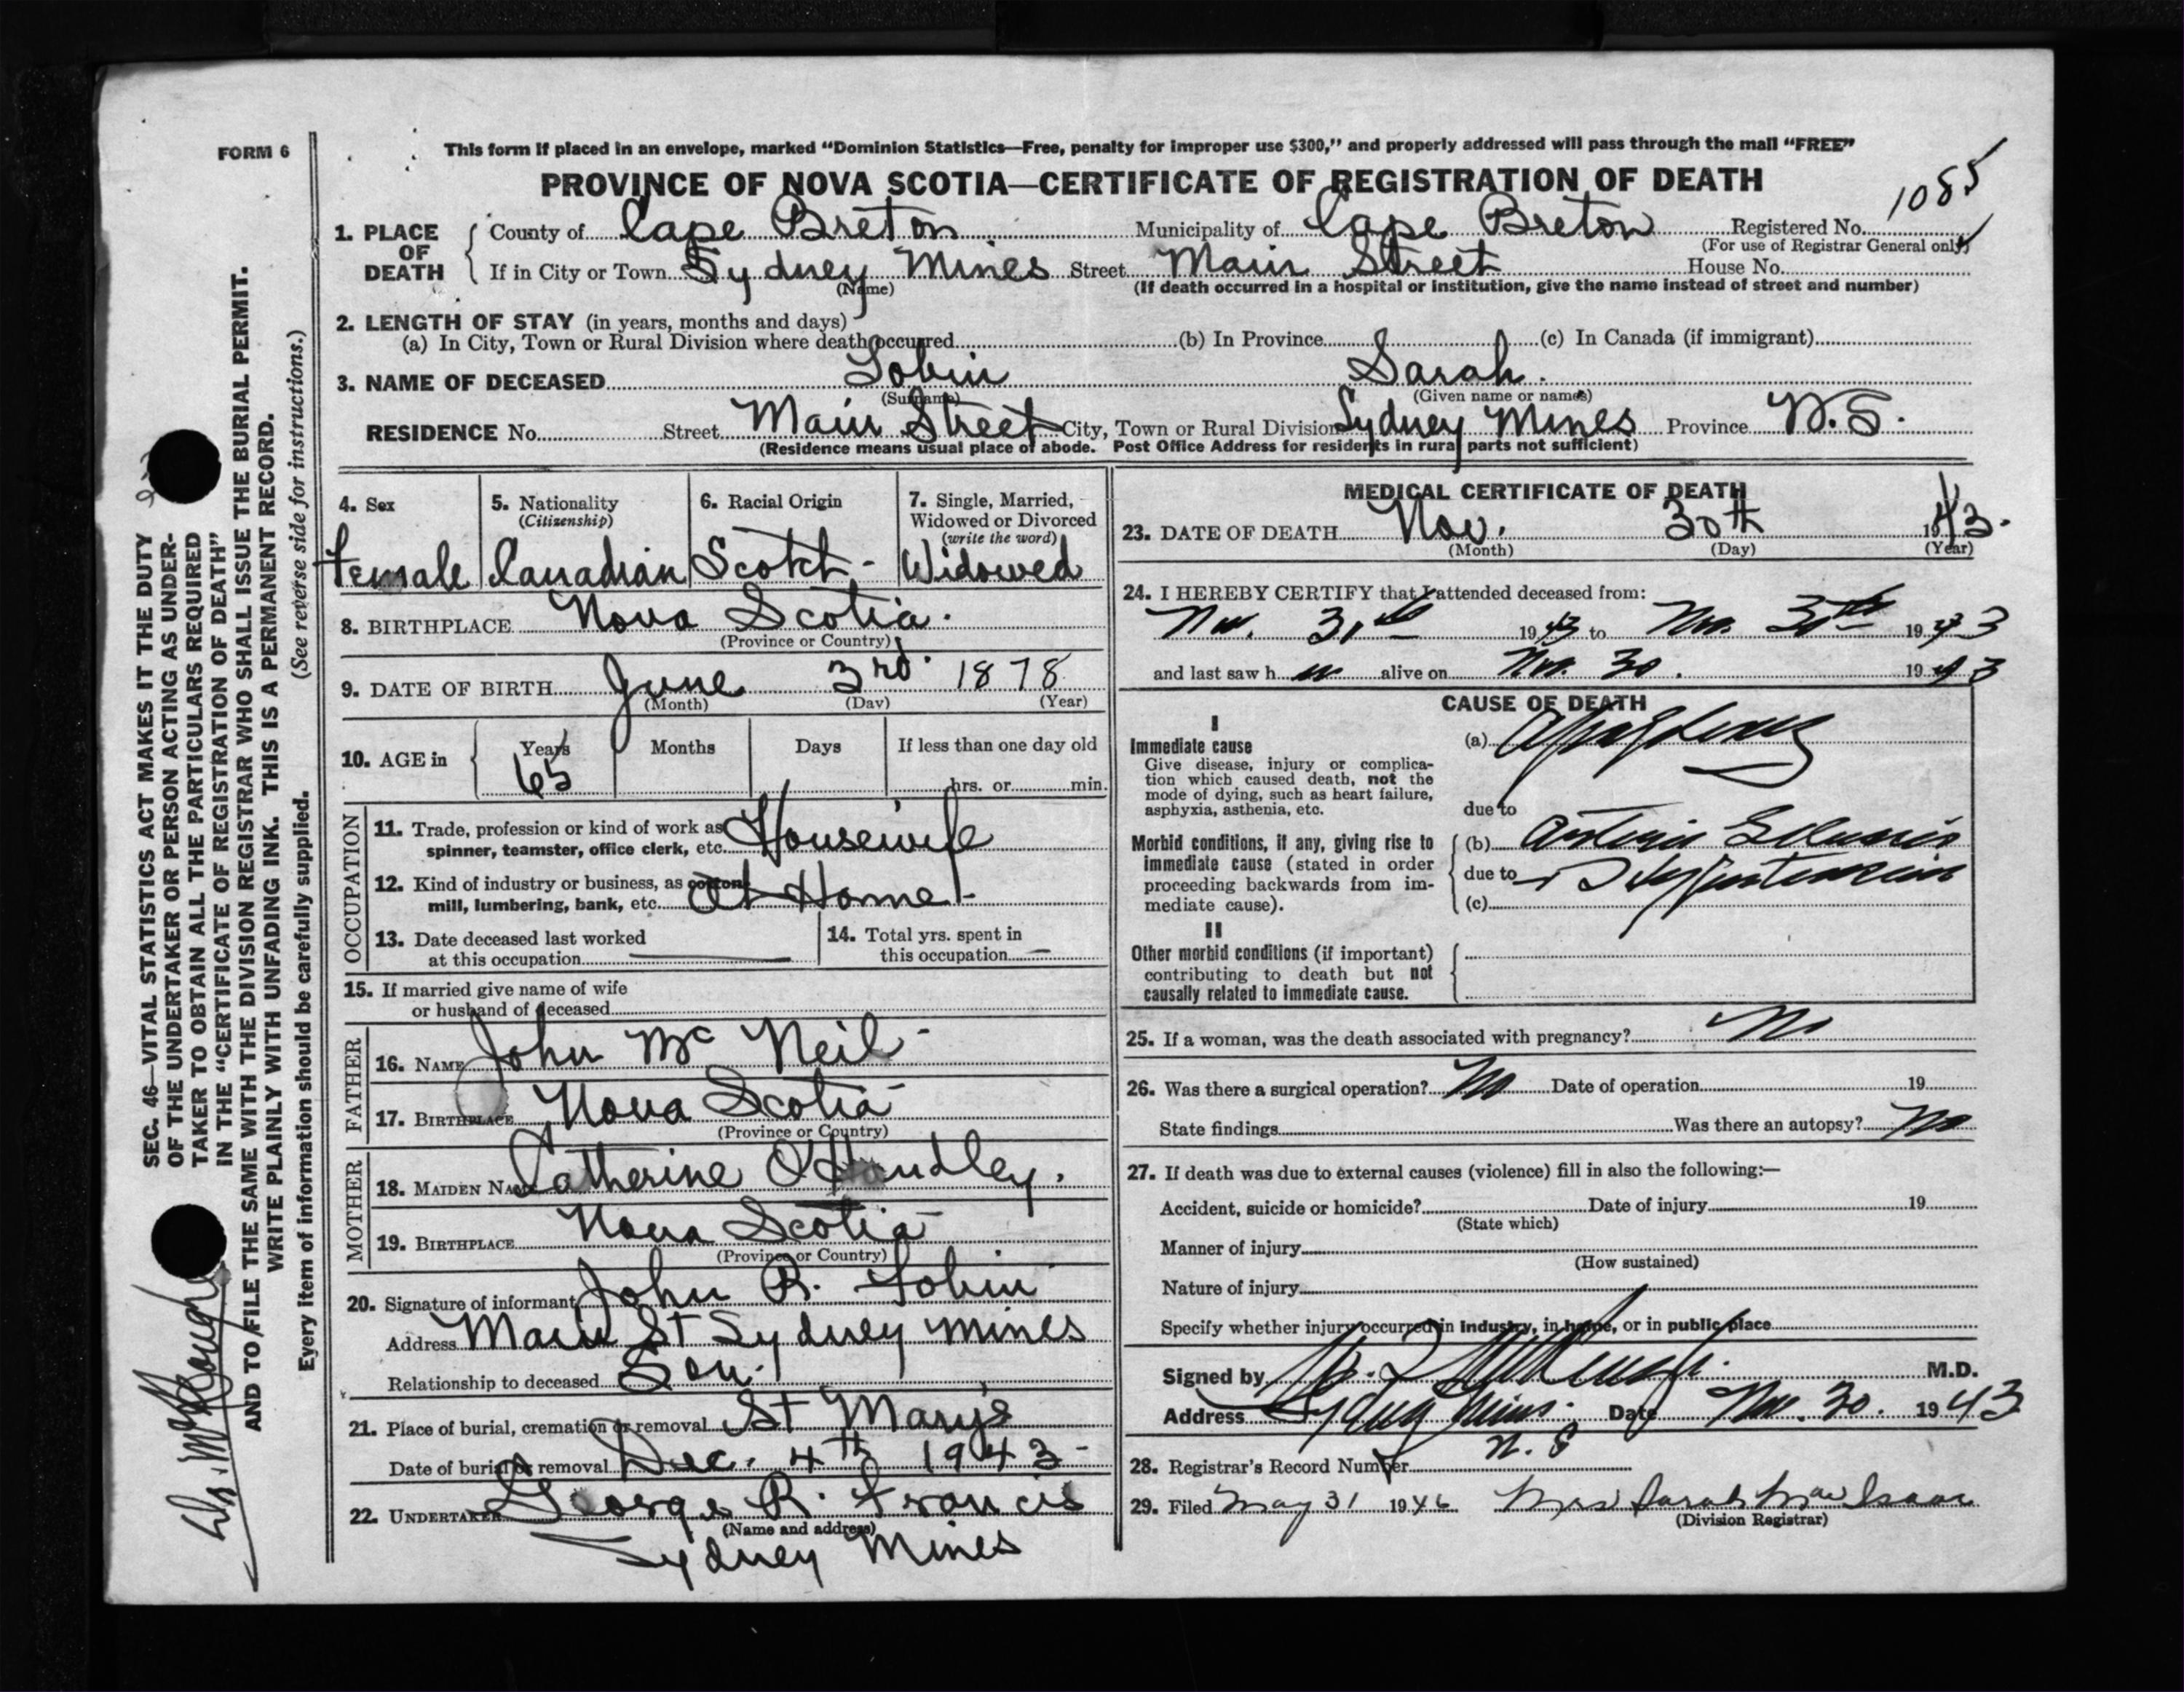 FORM 6
This form if placed in an envelope, marked “Dominion Statistics—Free, penalty for improper use $300,” and properly addressed will pass through the mail “FREE”
PROVINCE OF NOVA SCOTIA—CERTIFICATE OF REGISTRATION OF DEATH
1085
1. PLACE OF DEATH County of Cape Breton Municipality of Cape Breton Registered No.
(For use of Registrar General only)
If in City or Town Sydney Mines Street Main Street House No.
(Name) (If death occurred in a hospital or institution, give the name instead of street and number)
2. LENGTH OF STAY (in years, months and days)
(a) In City, Town or Rural Division where death occurred (b) In Province (c) In Canada (if immigrant)
3. NAME OF DECEASED Tobin Sarah.
(Surname) (Given name or names)
RESIDENCE No. Street Main Street City, Town or Rural Division Sydney Mines Province N.S.
(Residence means usual place of abode. Post Office Address for residents in rural parts not sufficient)
4. Sex
Female
5. Nationality
(Citizenship)
Canadian
6. Racial Origin
Scotch -
7. Single, Married,
Widowed or Divorced
(write the word)
Widowed
8. BIRTHPLACE Nova Scotia.
(Province or Country)
9. DATE OF BIRTH June 3rd. 1878
(Month) (Day) (Year)
10. AGE in Years Months Days If less than one day old
65 hrs. or min.
OCCUPATION
11. Trade, profession or kind of work as
spinner, teamster, office clerk, etc. Housewife
12. Kind of industry or business, as cotton
mill, lumbering, bank, etc. At Home -
13. Date deceased last worked
at this occupation
14. Total yrs. spent in
this occupation
15. If married give name of wife
or husband of deceased
FATHER
16. NAME John Mc Neil -
17. BIRTHPLACE Nova Scotia -
(Province or Country)
MOTHER
18. MAIDEN NAME Catherine O'Handley.
19. BIRTHPLACE Nova Scotia -
(Province or Country)
20. Signature of informant John R. Tobin
Address Main St Sydney Mines
Relationship to deceased Son.
21. Place of burial, cremation or removal St Mary's
Date of burial or removal Dec. 4th 1943 -
22. UNDERTAKER George R. Francis
(Name and address)
Sydney Mines
MEDICAL CERTIFICATE OF DEATH
23. DATE OF DEATH Nov. 30th 1943.
(Month) (Day) (Year)
24. I HEREBY CERTIFY that I attended deceased from:
Nov. 1943 to Nov. 30th 1943
and last saw h er alive on Nov. 30. 1943
CAUSE OF DEATH
I
Immediate cause
Give disease, injury or complica-
tion which caused death, not the
mode of dying, such as heart failure,
asphyxia, asthenia, etc.
(a) Apoplexy
due to
Morbid conditions, if any, giving rise to
immediate cause (stated in order
proceeding backwards from im-
mediate cause).
(b)
due to Hypertension
(c)
II
Other morbid conditions (if important)
contributing to death but not
causally related to immediate cause.
25. If a woman, was the death associated with pregnancy? No
26. Was there a surgical operation? No Date of operation 19
State findings Was there an autopsy? No
27. If death was due to external causes (violence) fill in also the following:—
Accident, suicide or homicide? Date of injury 19
(State which)
Manner of injury
(How sustained)
Nature of injury
Specify whether injury occurred in industry, in home, or in public place
Signed by M.D.
Address Sydney Mines. Date Nov. 30. 1943
N. S
28. Registrar's Record Number
29. Filed May 31 1946 Mrs Sarah MacIsaac
(Division Registrar)
SEC. 46—VITAL STATISTICS ACT MAKES IT THE DUTY
OF THE UNDERTAKER OR PERSON ACTING AS UNDER-
TAKER TO OBTAIN ALL THE PARTICULARS REQUIRED
IN THE “CERTIFICATE OF REGISTRATION OF DEATH”
AND TO FILE THE SAME WITH THE DIVISION REGISTRAR WHO SHALL ISSUE THE BURIAL PERMIT.
WRITE PLAINLY WITH UNFADING INK. THIS IS A PERMANENT RECORD.
Every item of information should be carefully supplied. (See reverse side for instructions.)